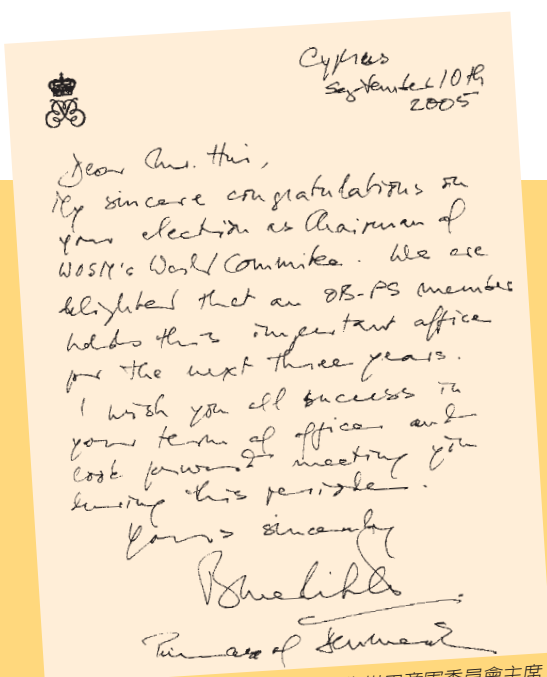 Cyprus
September 10th
2005
Dear Mr. Hui,
My sincere congratulations on
your election as Chairman of
WOSM's World Commitee. We are
delighted that an OB-PS member
holds this important office
for the next three years.
I wish you all success in
your term of office and
look forward meeting you
during this periode.
Yours sincerely
Benedikte
Princess of Denmark
童軍委員會主席